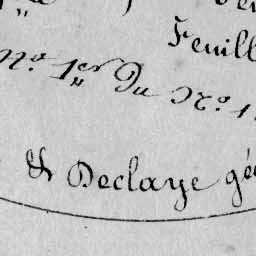 Feuill
N.º 1.er Du N.º 1
& Declaye gé